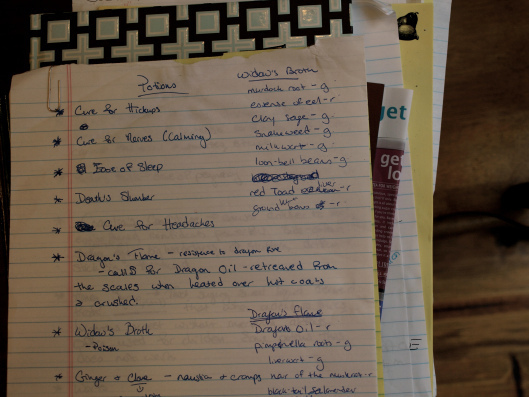 Potions
* Cure for Hickups
* Cure for Nerves (Calming)
* Ease of Sleep
* Death's Slumber
* Cure for Headaches
* Dragon's Flame - resistence to dragon fire
- calls for Dragon Oil - retreaved from
the scales when heated over hot coals
& crushed.
* Widow's Broth
- Poison
* Ginger & Clove - nausha & cramps
Widow's Broth
murdock root - g
essense of eel - r
clay sage - g
Snakeweed - g
milkwort - g
loon-bell beans - g
red Toad liver
ground - r
Dragon's Flame
Dragons Oil - r
pimpernella root - g
liverwort - g
hair of the - r
black tail salamander
get
get
lo